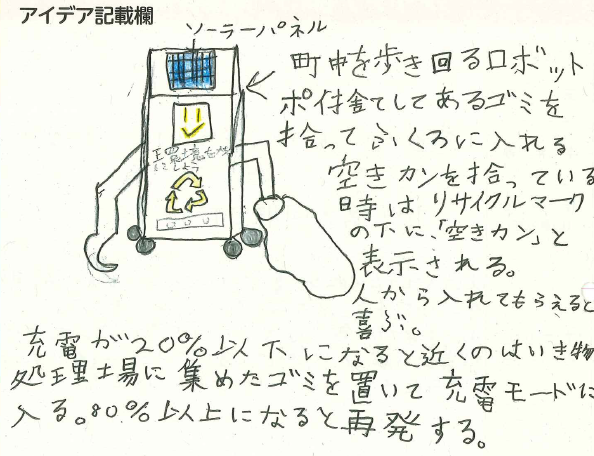 アイデア記載欄
ソーラーパネル
町中を歩き回るロボット
ポイ捨てしてあるゴミを
拾ってふくろに入れる
空きカンを拾っている
時はリサイクルマーク
の下に、「空きカン」と
表示される。
人から入れてもらえると
喜ぶ。
環境を
しよう
充電が20%以下になると近くのはいき物
処理場に集めたゴミを置いて充電モードに
入る。80%以上になると再発する。